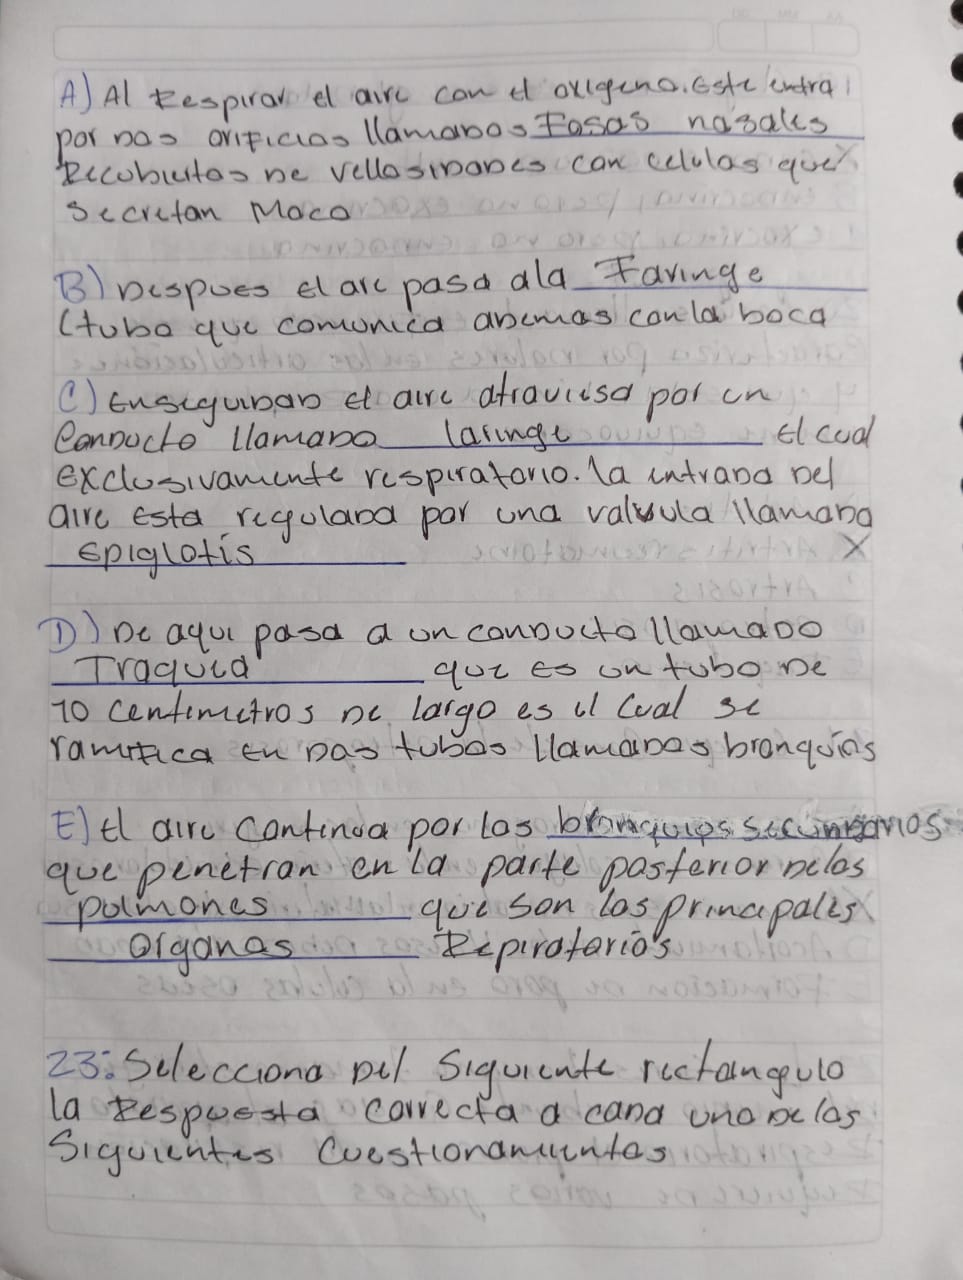 A) Al Respirar el aire con el oxigeno. Este entra
por dos orificios llamados Fosas nasales
Recubiertos de vellosidades con celulas que
secretan Moco
B) Despues el aic pasa ala Faringe
(tubo que comunica ademas con la boca
C) Enseguidad el aire atraviesa por un
Conducto llamado laringe El cual
exclusivamente respiratorio. la entrada del
aire Esta regulada por una valvula llamada
Epiglotis
D) De aqui pasa a un conducto llamado
Traquea que es un tubo de
10 centimetros de largo es el Cual se
ramifica en Dos tubos llamados bronquios
E) El aire continua por los bronquios secundarios
que penetran en la parte posterior delos
pulmones que son los principales
organos Repiratorios
23: Selecciona Del Siguiente rectangulo
la Respuesta correcta a cada uno de las
Siguientes Cuestionamientos